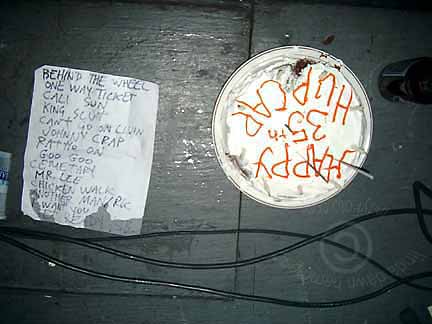 BEHIND THE WHEEL
ONE WAY TICKET
CALI SUN
KING SLUT
CAN'T GO ON LIVIN
JOHNNY CRAP
ON
GOO GOO
CEMETARY
MR. LEE
CHICKEN WALK
MAN
YOU
HAPPY
35th